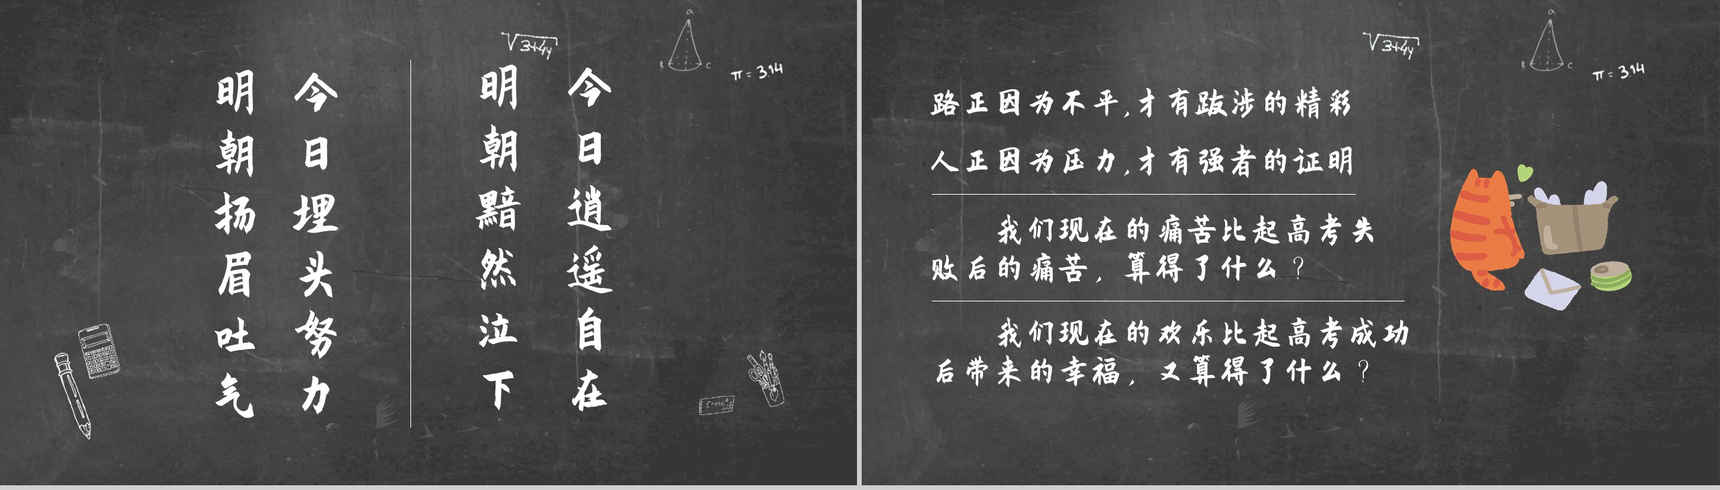 今日逍遥自在
明朝黯然泣下
今日埋头努力
明朝扬眉吐气
√3+4y
A
B
C
π=3.14
E=mc²
路正因为不平,才有跋涉的精彩
人正因为压力,才有强者的证明
我们现在的痛苦比起高考失
败后的痛苦，算得了什么？
我们现在的欢乐比起高考成功
后带来的幸福，又算得了什么？
√3+4y
A
B
C
π=3.14